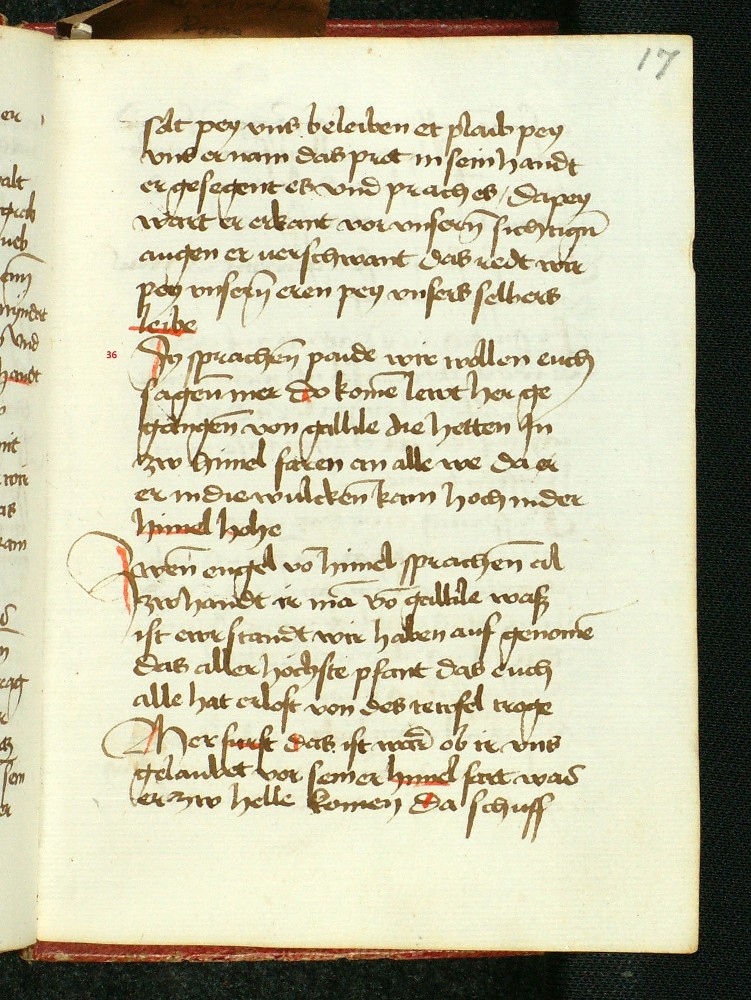 17
solt pey vns beleiben et plaib pey
vns er nam das prot in sein handt
er gesegent es vnd prach es / dapey
wart er erkant vor vnsern̄ sichtign̄
augen er verschwant das redt wir
pey vnsern̄ eren pey vnsers selbers
leibe
36
Sy sprachen̄ paide wir wollen euch
sagen̄ mer do kome͞ lewt her ge
gangen̄ von gallile die hetten In
zw himel faren an alle we da er
er in die wulcken̄ kam hoch in der
himel hohe
Zwen̄ engel vo͞ himel sprachen̄ al
zw handt ir ma͞ vo͞ gallile waß
ist ewr standt wir haben auf genome͞
das aller hochste pfant das euch
alle hat erlost von des tewfel troge
Her furst das ist war̄ ob ir vns
gelaubet vor seiner himel fart was
er zw helle komen da schuff